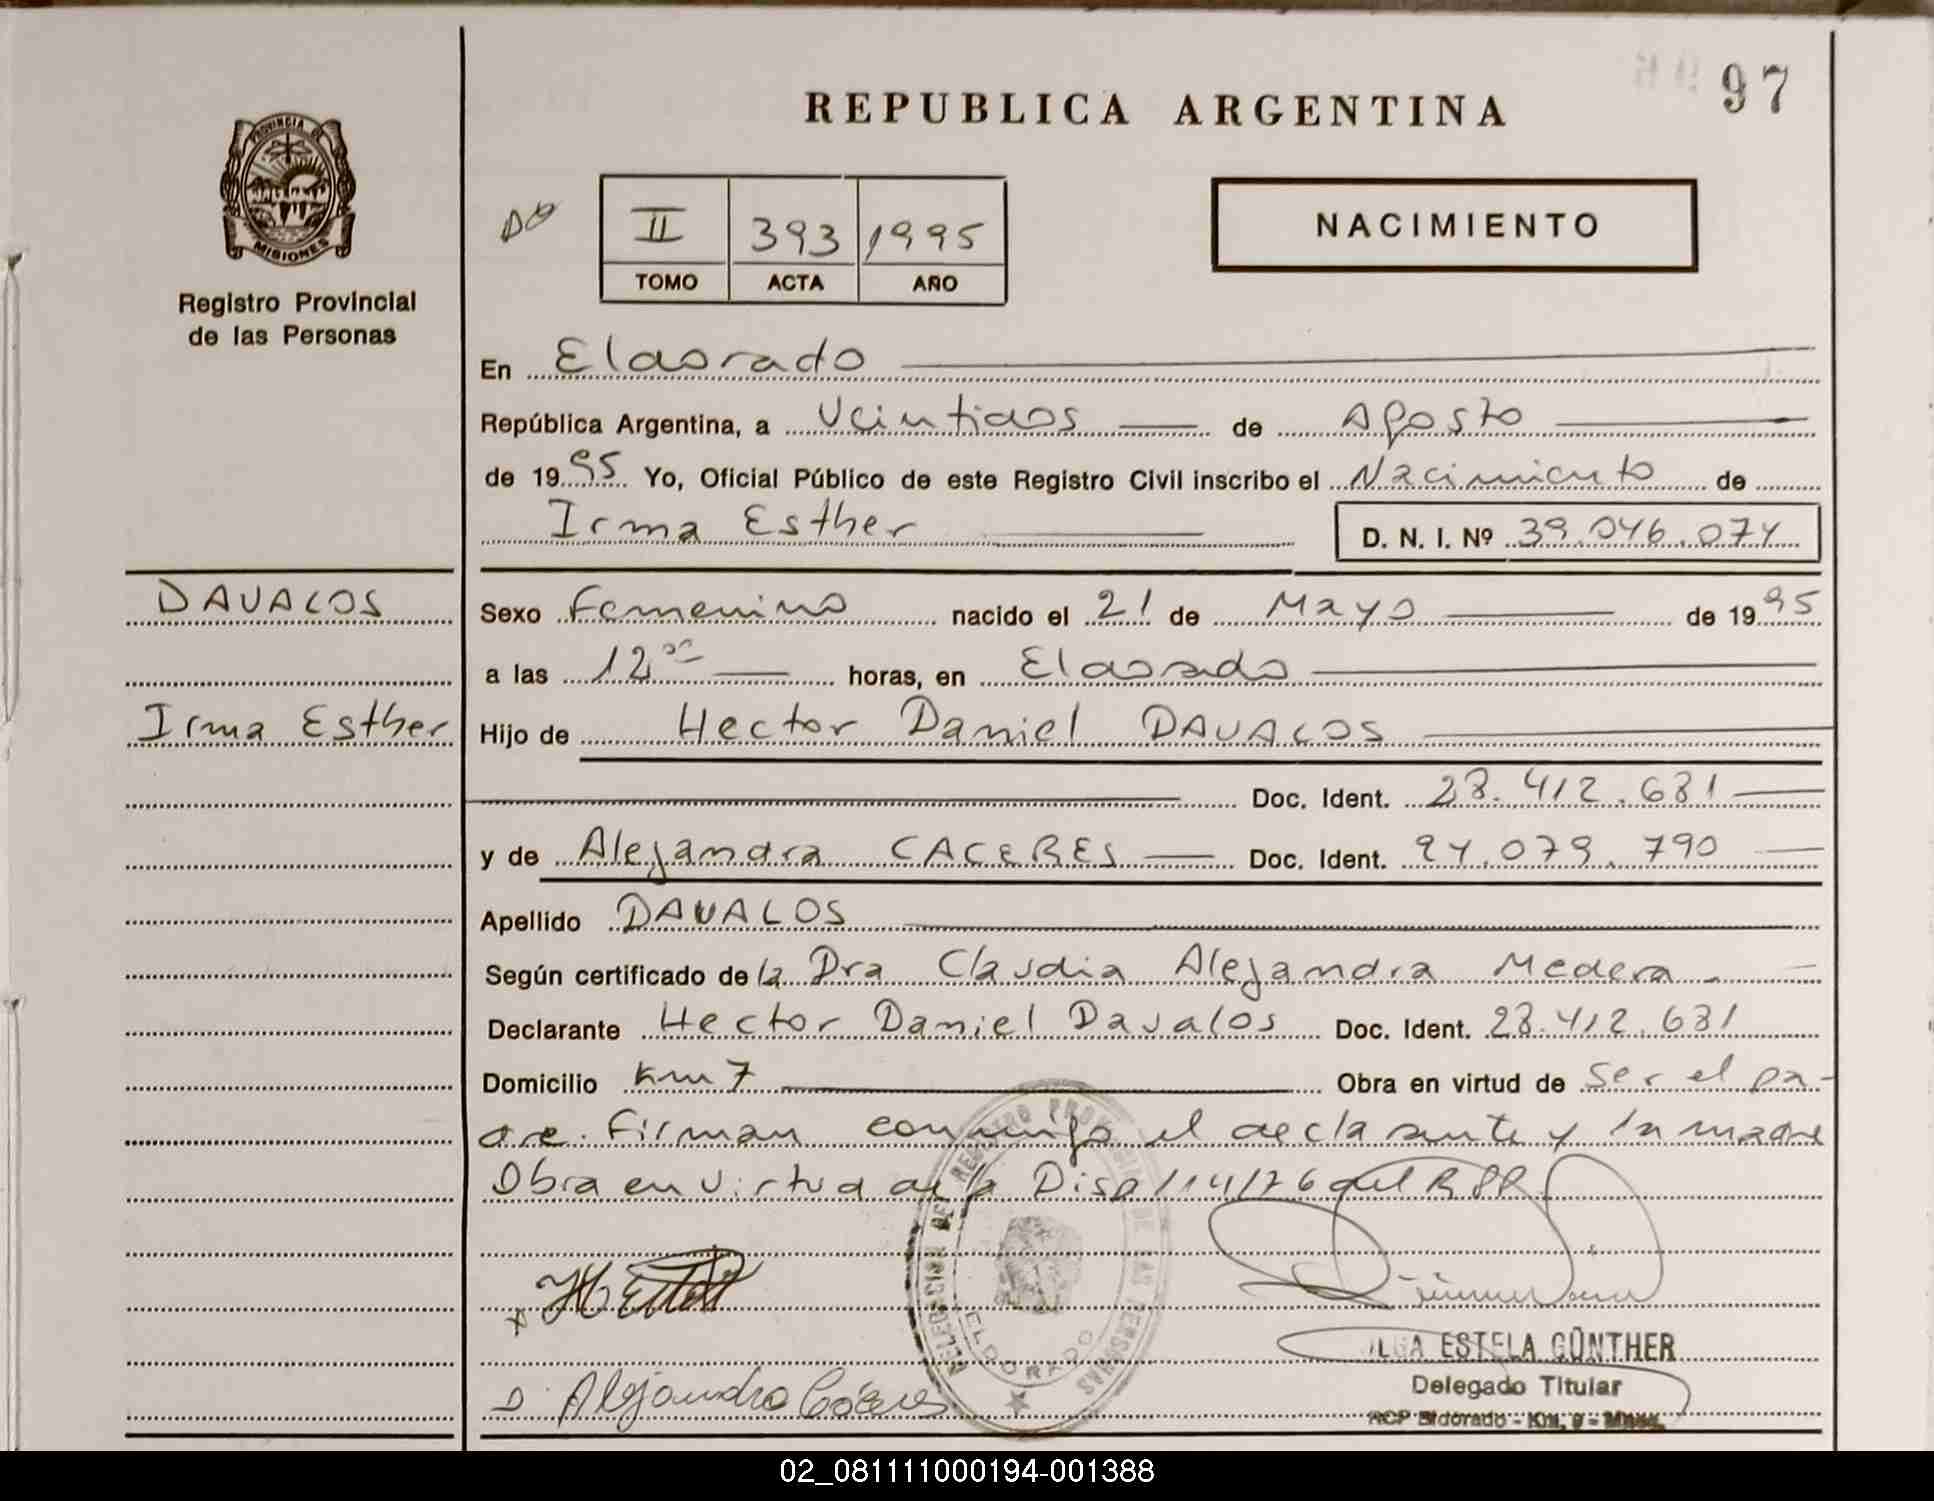 97
REPUBLICA ARGENTINA
PROVINCIA DE
MISIONES
Registro Provincial
de las Personas
II 393 1995
TOMO ACTA AÑO
NACIMIENTO
En Eldorado
República Argentina, a Veintidos de Agosto
de 1995 Yo, Oficial Público de este Registro Civil inscribo el Nacimiento de
Irma Esther D. N. I. Nº 39.046.074
DAVALOS
Irma Esther
Sexo Femenino nacido el 21 de Mayo de 1995
a las 12 horas, en Eldorado
Hijo de Hector Daniel DAVALOS
Doc. Ident. 28.412.681
y de Alejandra CACERES Doc. Ident. 94.079.790
Apellido DAVALOS
Según certificado de la Dra Claudia Alejandra Medera
Declarante Hector Daniel Davalos Doc. Ident. 28.412.681
Domicilio Km 7 Obra en virtud de ser el pa-
dre. Firman conmigo el declarante y la madre
Obra en virtud de la Disp 114/76 del RPP
REGISTRO PROVINCIAL DE LAS PERSONAS
ELDORADO
Alejandra Cáceres
ESTELA GÜNTHER
Delegado Titular
RCP Eldorado - Km. 9 -
02_081111000194-001388